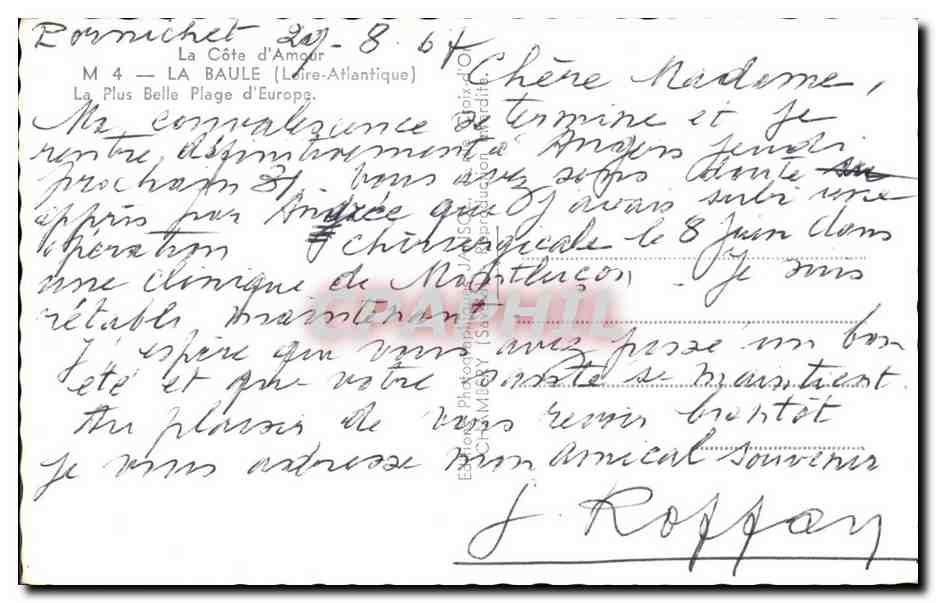 Pornichet 29-8.67
La Côte d'Amour
M 4 — LA BAULE (Loire-Atlantique)
La Plus Belle Plage d'Europe.
Chère Madame,
Ma convalescence se termine et je
rentre définitivement à Angers jeudi
prochain 31. Vous avez sans doute
appris par Andrée que j'avais subi une
opération chirurgicale le 8 juin dans
une clinique de Montluçon. Je suis
rétabli maintenant
J'espère que vous avez passé un bon
été et que votre santé se maintient.
Au plaisir de vous revoir bientôt
je vous adresse mon amical souvenir
J. Roffay
Editions Photographiques
CHAMBERY (Savoie) Reproduction interdite.
CPAPHIL